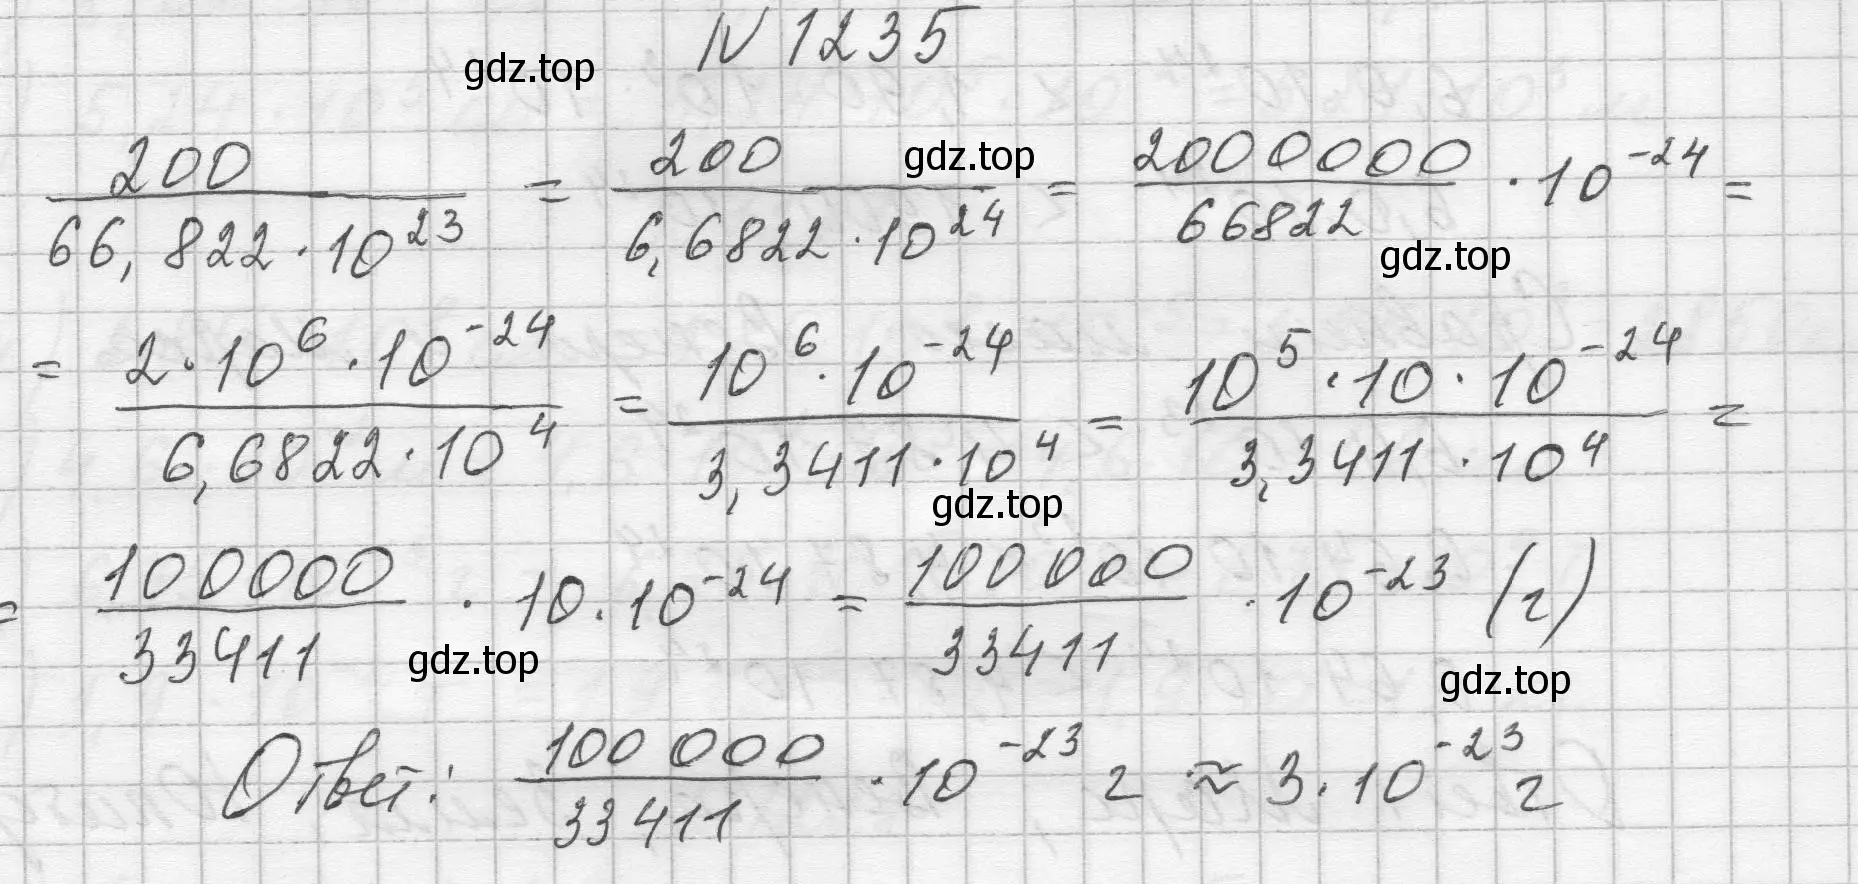 N 1235
gdz.top
200 / 66,822 · 10^23 = 200 / 6,6822 · 10^24 = 2000000 / 66822 · 10^-24 =
gdz.top
gdz.top
= 2 · 10^6 · 10^-24 / 6,6822 · 10^4 = 10^6 · 10^-24 / 3,3411 · 10^4 = 10^5 · 10 · 10^-24 / 3,3411 · 10^4 =
gdz.top
= 100000 / 33411 · 10 · 10^-24 = 100000 / 33411 · 10^-23 (г)
gdz.top
gdz.top
Ответ: 100 000 / 33411 · 10^-23 г ≈ 3 · 10^-23 г